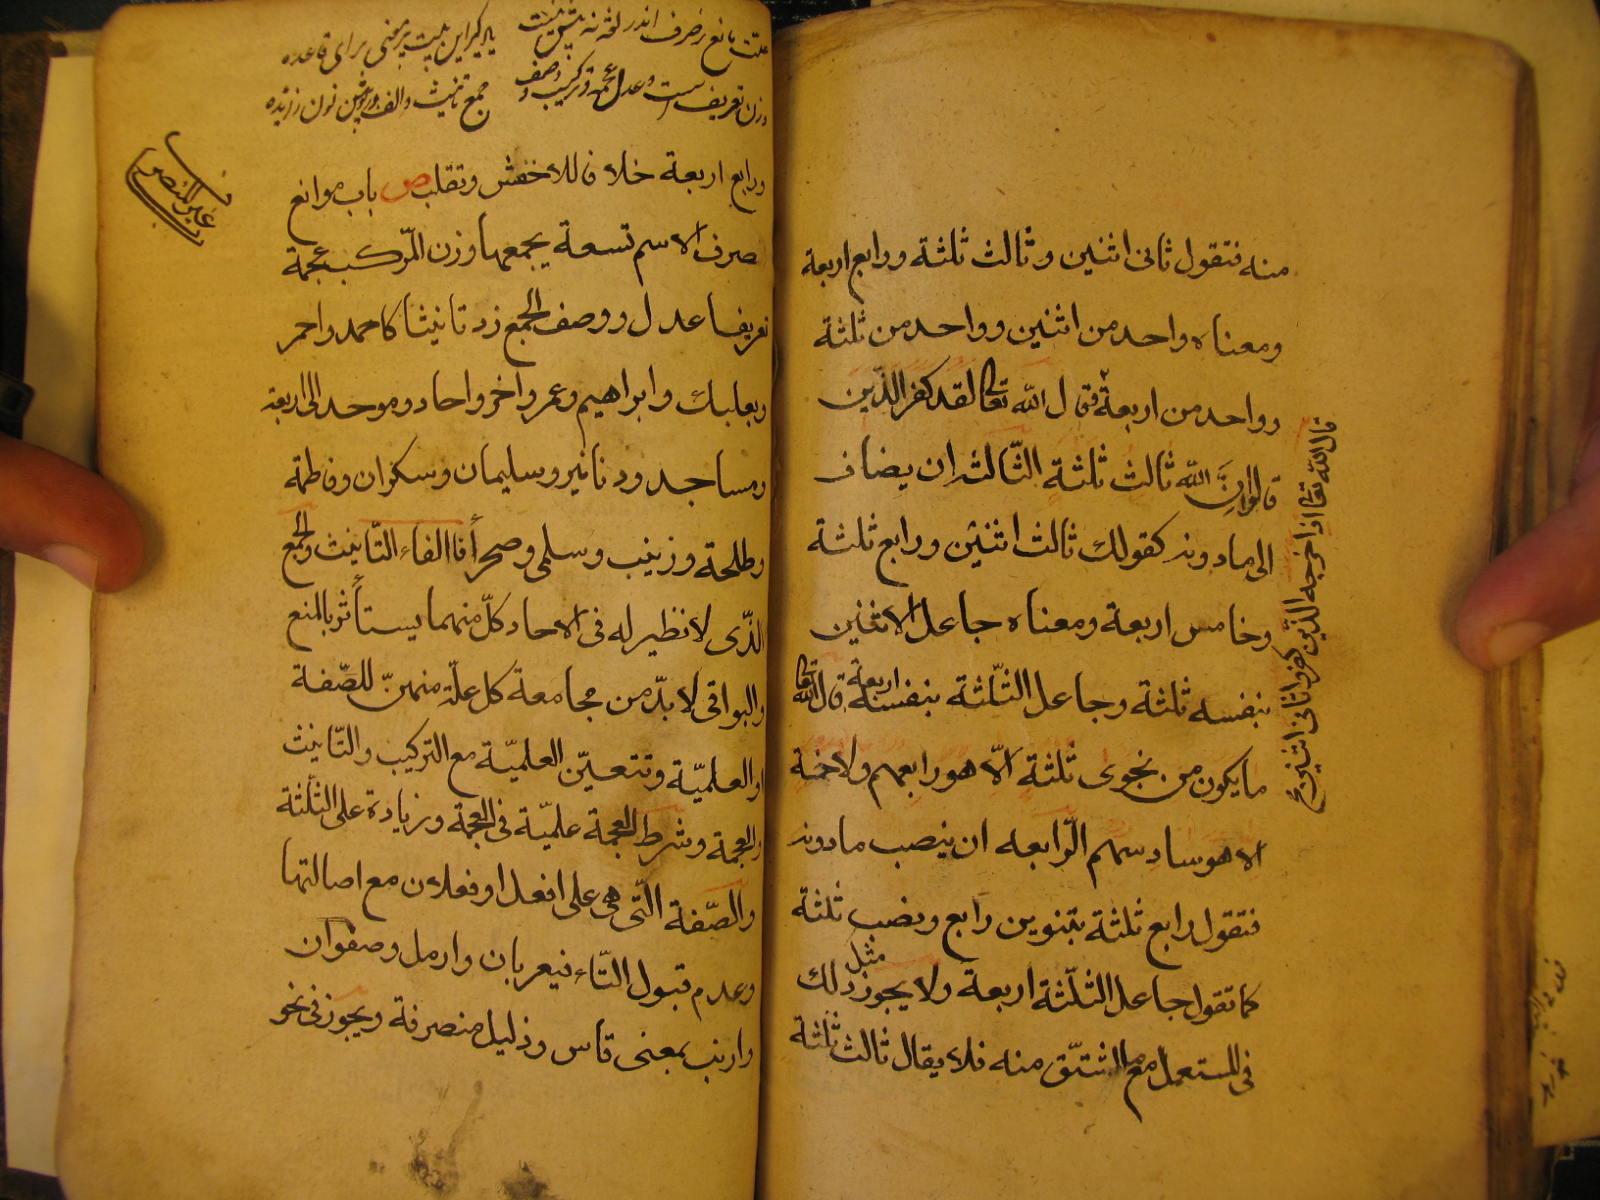 منه فتقول ثانى اثنين وثالث ثلثة ورابع اربعة
ومعناه واحد من اثنين وواحد من ثلثة
وواحد من اربعة قال الله تعالى لقد كفر الذين
قالوا انّ الله ثالث ثلثة الثّالث ان يضاف
الى ما دونه كقولك ثالث اثنين ورابع ثلثة
وخامس اربعة ومعناه جاعل الاثنين
بنفسه ثلثة وجاعل الثّلثة بنفسه اربعة قال الله تعالى
ما يكون من نجوى ثلثة الّا هو رابعهم ولا خمسة
الا هو سادسهم الرّابعه ان ينصب ما دونه
فتقول رابع ثلثة بتنوين رابع ونصب ثلثة
كما تقول جاعل الثّلثة اربعة ولا يجوز مثل ذلك
فى المستعمل مع ما اشتّق منه فلا يقال ثالث ثلثة
قال الله تعالى اذ اخرجه الذين كفروا ثانى اثنين
علت مانع ز صرف اندر
ياد كير اين بيت پر معنى براى قاعده
وزن تعريف است وعدل عجمه وتركيب وصف
جمع تانيث والف وپس نون زائده
غير المنصرف
ورابع اربعة خلافا للاخفش وتقلب ص باب موانع
صرف الاسم تسعة يجمعها وزن المركب عجمة
تعريفها عدل ووصف الجمع زد تانيثا كاحمد واحمر
وبعلبك وابراهيم وعمر واخر واحاد وموحد الى اربعة
ومساجد ودنانير وسليمان وسكران وفاطمة
وطلحة وزينب وسلمى وصحراء فالفاء التّانيث والجمع
الّذى لا نظير له فى الاحاد كلّ منهما يستأثر بالمنع
والبواقى لا بدّ من مجامعة كل علّة منهنّ للصّفة
او العلميّة وتتعيّن العلميّة مع التركيب والتّانيث
والعجمة وشرط العجمة علميّة فى العجمة وزيادة على الثّلثة
والصّفة الّتى هى على افعل او فعلان مع اصالتها
وعدم قبول التّاء فيعربان وارمل وصفوان
وارنب بمعنى قاس وذليل منصرفة ويجوز فى نحو